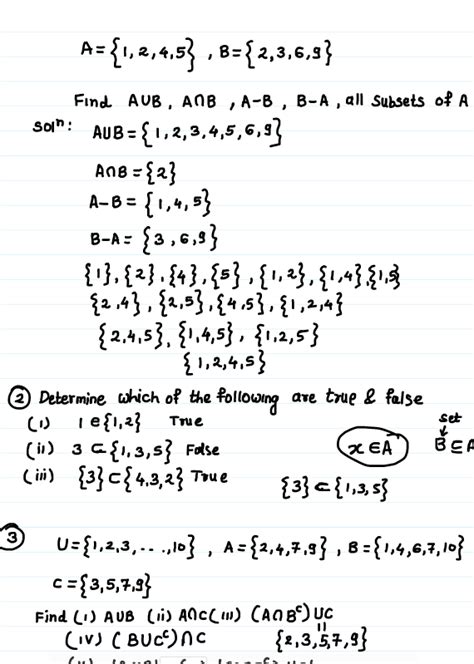 A = {1, 2, 4, 5} , B = {2, 3, 6, 9}
Find A∪B , A∩B , A-B , B-A , all subsets of A
Solⁿ: A∪B = {1, 2, 3, 4, 5, 6, 9}
A∩B = {2}
A-B = {1, 4, 5}
B-A = {3, 6, 9}
{1}, {2}, {4}, {5}, {1, 2}, {1, 4}, {1, 5}
{2, 4}, {2, 5}, {4, 5}, {1, 2, 4}
{2, 4, 5}, {1, 4, 5}, {1, 2, 5}
{1, 2, 4, 5}
② Determine which of the following are true & false
(i) 1 ∈ {1, 2} True
(ii) 3 ⊂ {1, 3, 5} False
x ∈ A
set
↓
B ⊆ A
(iii) {3} ⊂ {4, 3, 2} True
{3} ⊂ {1, 3, 5}
③ U = {1, 2, 3, ..., 10} , A = {2, 4, 7, 9} , B = {1, 4, 6, 7, 10}
C = {3, 5, 7, 9}
Find (i) A∪B (ii) A∩C (iii) (A∩Bᶜ)∪C
(iv) (B∪Cᶜ)∩C
=
{2, 3, 5, 7, 9}